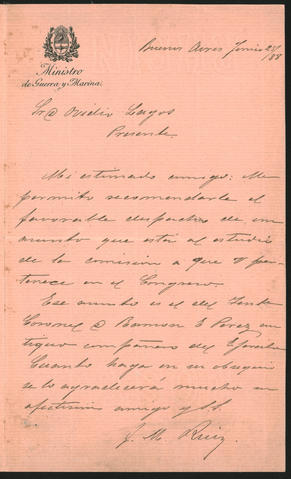 Ministro
de Guerra y Marina
Buenos Aires Junio 21/88
Sr D Ovidio Lagos
Presente
Mi estimado amigo: Me
permito recomendarle el
favorable despacho de un
asunto que está al estudio
de la comision a que V per-
tenece en el Congreso.
Ese asunto es el del Tente
Coronel D Ramon E Perez, an-
tiguo compañero del Ejercito
Cuanto haga en su obsequio
se lo agradecerá mucho su
afectisimo amigo y S.S.
J. M. Ruiz.